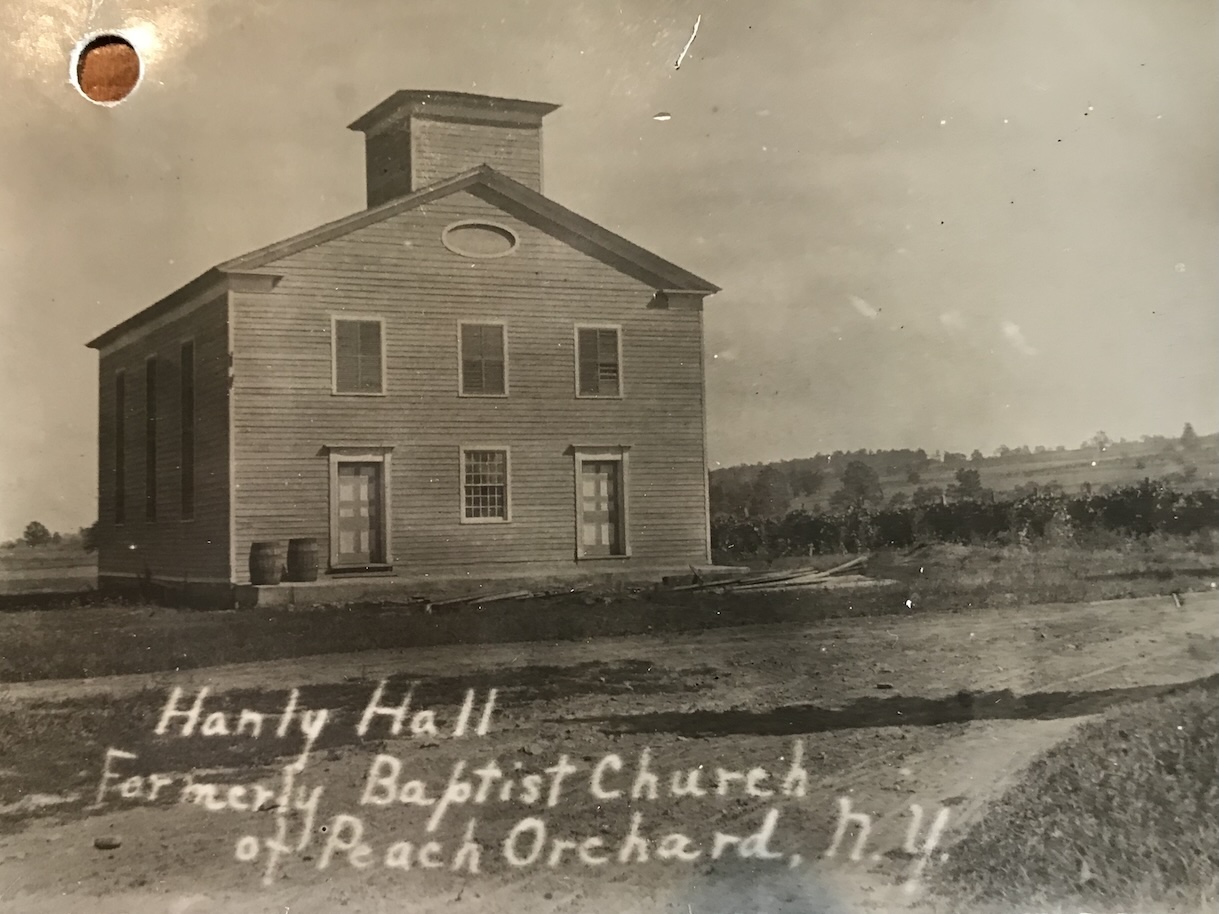 Hanly Hall
Formerly Baptist Church
of Peach Orchard, N.Y.